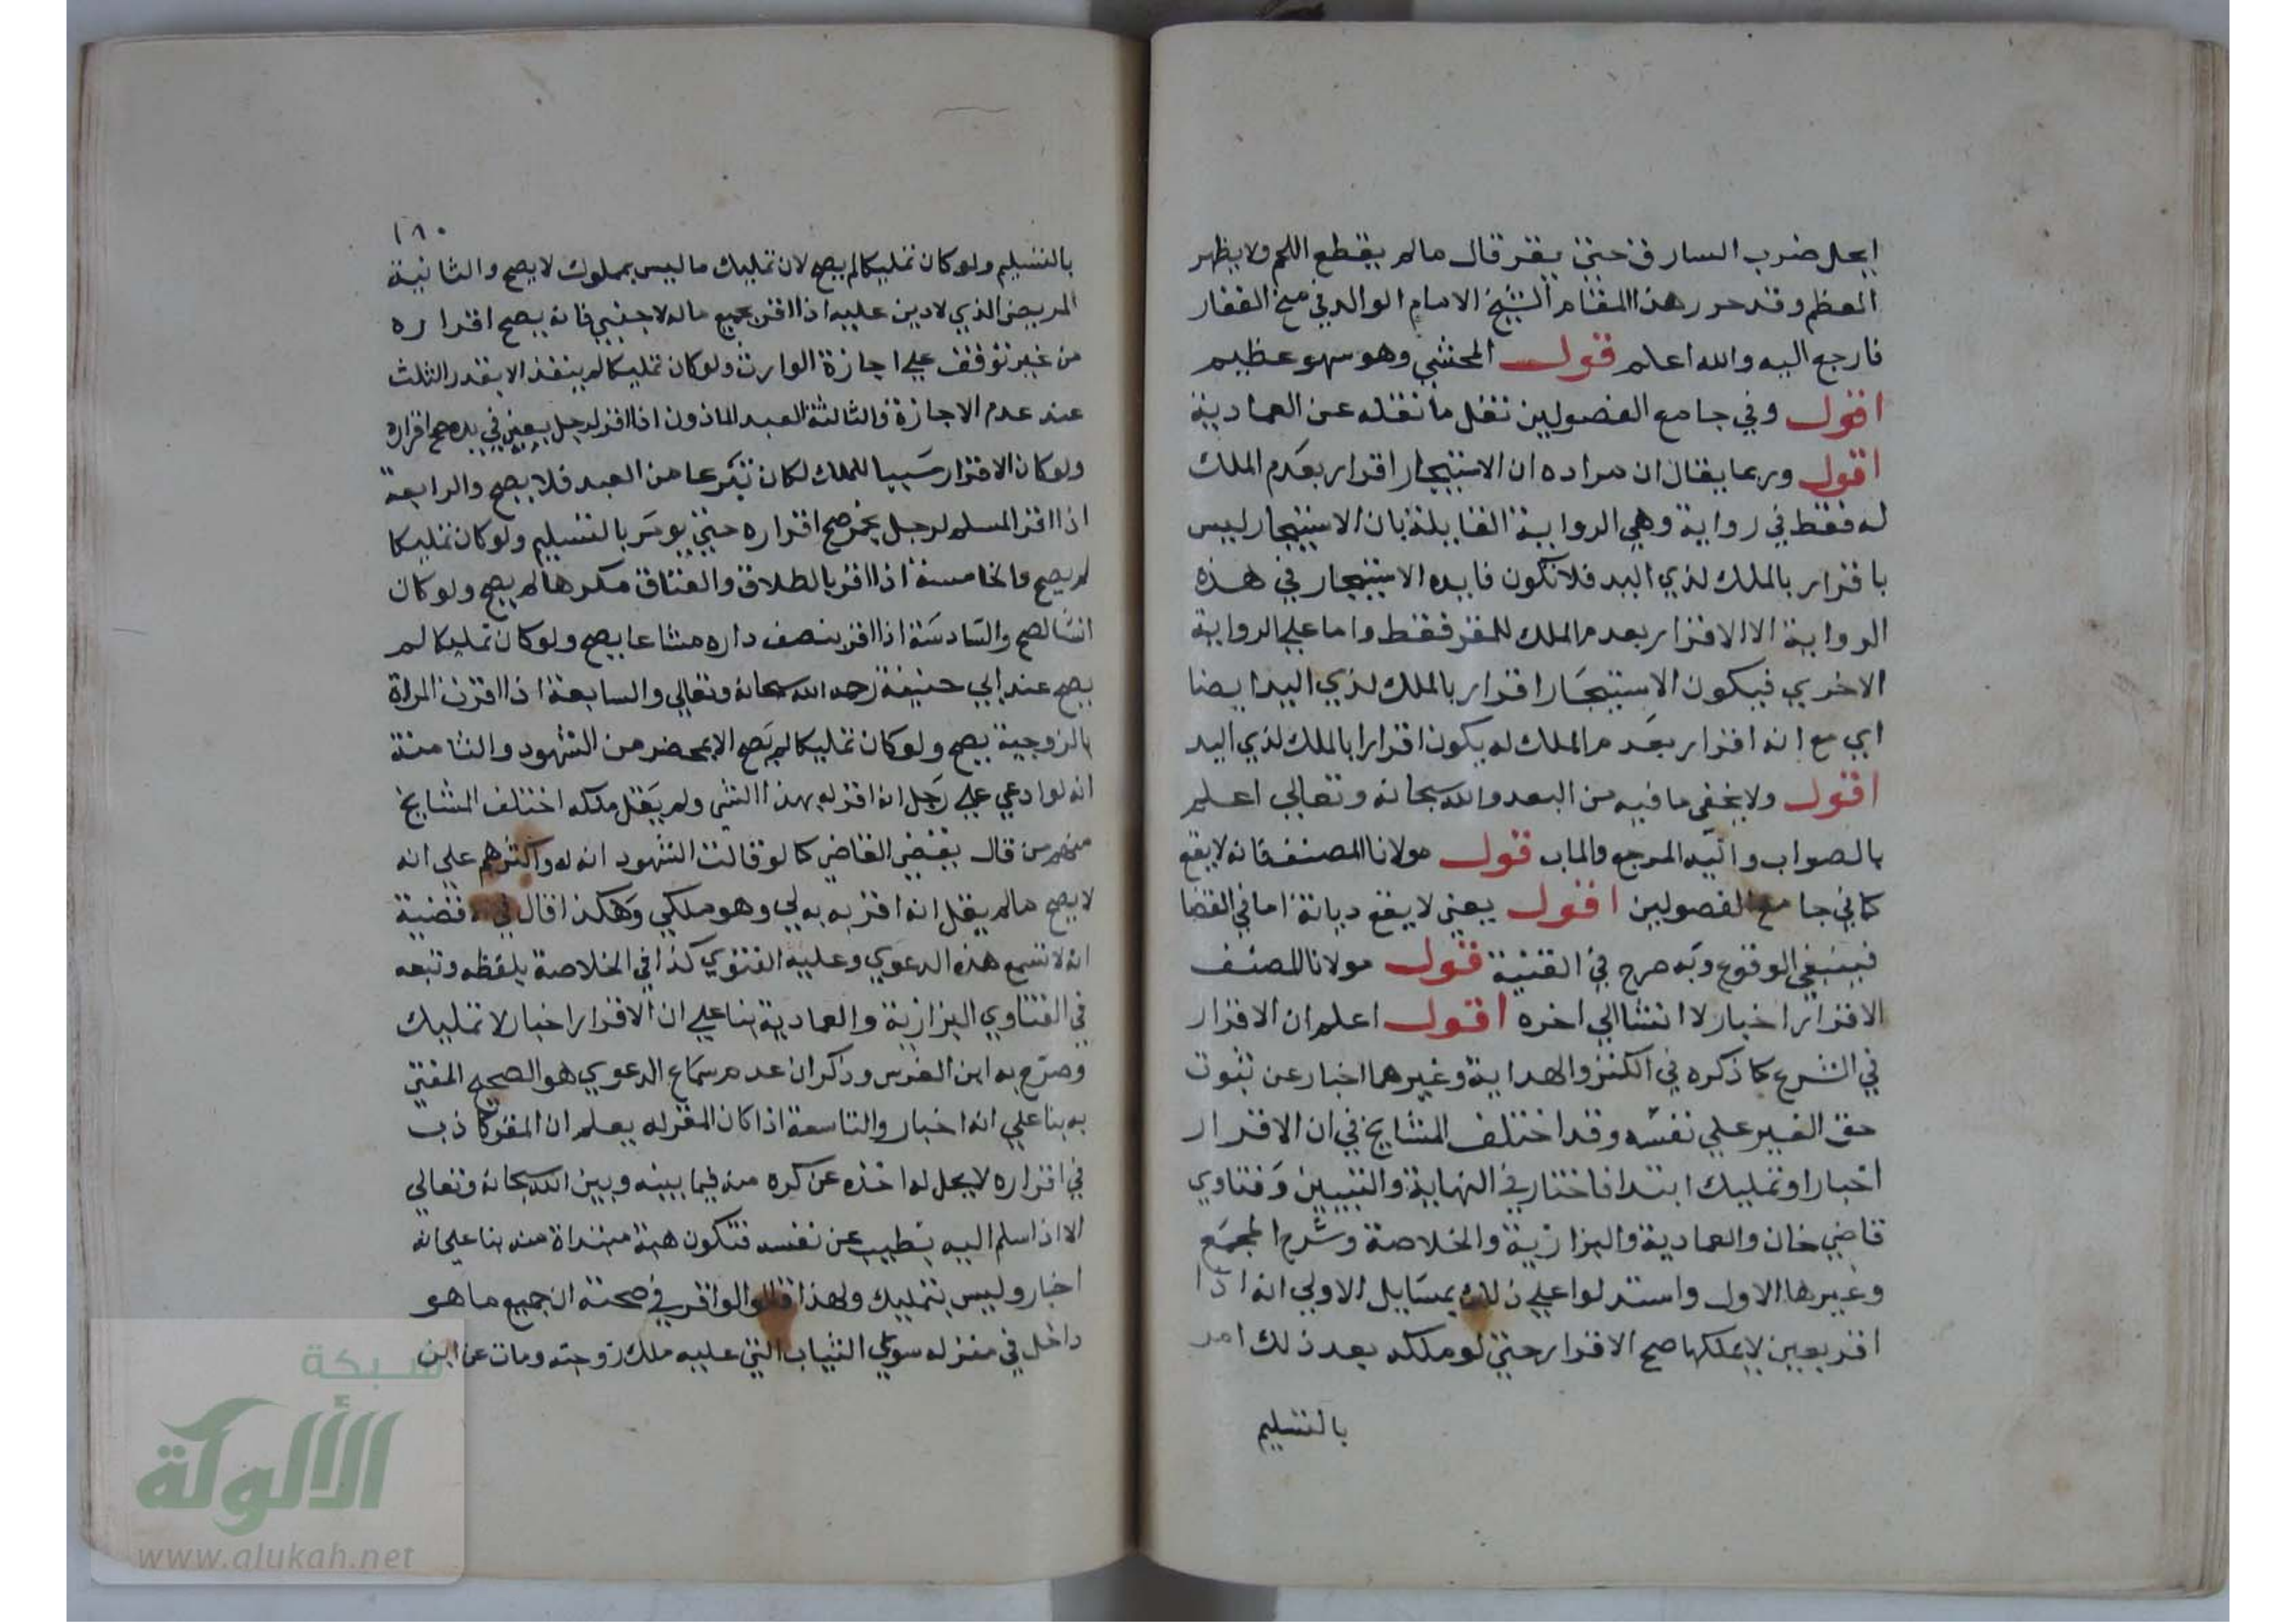 ايحل ضرب السارق حتى يقر قال مالم يقطع اللحم ولا يظهر
العظم وقد حرر هذا المقام الشيخ الامام الوالد في منح الغفار
فارجع اليه والله اعلم قوله المحشي وهو سهو عظيم
اقول وفي جامع الفصولين نقل ما نقله عن العمادية
اقول وربما يقال ان مراده ان الاستيجار اقرار بعدم الملك
له فقط في رواية وهي الرواية القايلة بان الاستيجار ليس
باقرار بالملك لذي اليد فلا تكون فايده الاستيجار في هذه
الرواية الا الاقرار بعدم الملك للمقر فقط واما علي الرواية
الاخري فيكون الاستيجار اقرار بالملك لذي اليد ايضا
اي مع انه اقرار بعدم الملك له يكون اقرارا بالملك لذي اليد
اقول ولا يخفى ما فيه من البعد والله سبحانه وتعالي اعلم
بالصواب واليه المرجع والماب قول مولانا المصنف فانه لا يقع
كما في جامع الفصولين اقول يعني لا يقع ديانة اما في القضا
فينبغي الوقوع وبه صرح في القنية قول مولانا المصنف
الاقرار اخبار لا انشا الي اخره اقول اعلم ان الاقرار
في الشرع كما ذكره في الكنز والهداية وغيرهما اخبار عن ثبوت
حق الغير علي نفسه وقد اختلف المشايخ في ان الاقرار
اخبار او تمليك ابتدا فاختار في النهاية والتبيين وفتاوي
قاضي خان والعمادية والبزازية والخلاصة وشرح المجمع
وغيرها الاول واستدلوا علي ذلك بمسايل الاولي انه اذا
اقر بعين لا يملكها صح الاقرار حتى لو ملكه بعد ذلك امر
بالتسليم
١٨٠
بالتسليم ولو كان تمليكا لم يصح لان تمليك ما ليس بمملوك لا يصح والثانية
المريض الذي لا دين عليه اذا اقر بجميع ماله لاجنبي فانه يصح اقراره
من غير توقف علي اجازة الوارث ولو كان تمليكا لم ينفذ الا بقدر الثلث
عند عدم الاجازة والثالثة العبد الماذون اذا اقر لرجل بعين في يده صح اقراره
ولو كان الاقرار سببا للملك لكان تبرعا من العبد فلا يصح والرابعة
اذا اقر المسلم لرجل بخمر صح اقراره حتى يومر بالتسليم ولو كان تمليكا
لم يصح والخامسة اذا اقر بالطلاق والعتاق مكرها لم يصح ولو كان
انشا لصح والسادسة اذا اقر بنصف داره مشاعا يصح ولو كان تمليكا لم
يصح عند ابي حنيفة رحمه الله سبحانه وتعالي والسابعة اذا اقرت المراة
بالزوجية يصح ولو كان تمليكا لم تصح الا بمحضر من الشهود والثامنة
انه لو ادعي علي رجل انه اقر له بهذا الشي ولم يقل ملكه اختلف المشايخ
منهم من قال يقضي القاضي كما لو قالت الشهود انه له واكثرهم على انه
لا يصح مالم يقل انه اقر به به لي وهو ملكي وهكذا قال في قضية
انه لا تسمع هذه الدعوي وعليه الفتوي كذا في الخلاصة بلفظه وتبعه
في الفتاوي البزازية والعمادية بنا علي ان الاقرار اخبار لا تمليك
وصرح به ابن الغرس وذكر ان عدم سماع الدعوي هو الصحيح المفتى
به بنا علي انه اخبار والتاسعة اذا كان المقر له يعلم ان المقر كاذب
في اقراره لا يحل له اخذه عن كره منه فيما بينه وبين الله سبحانه وتعالي
الا اذا سلم اليه بطيب عن نفسه فتكون هبة مبتداة منه بنا علي انه
اخبار وليس بتمليك ولهذا قالوا لو اقر في صحته ان جميع ما هو
داخل في منزله سوي الثياب التي عليه ملك زوجته ومات عن ابن
شبكة
الألوكة
www.alukah.net